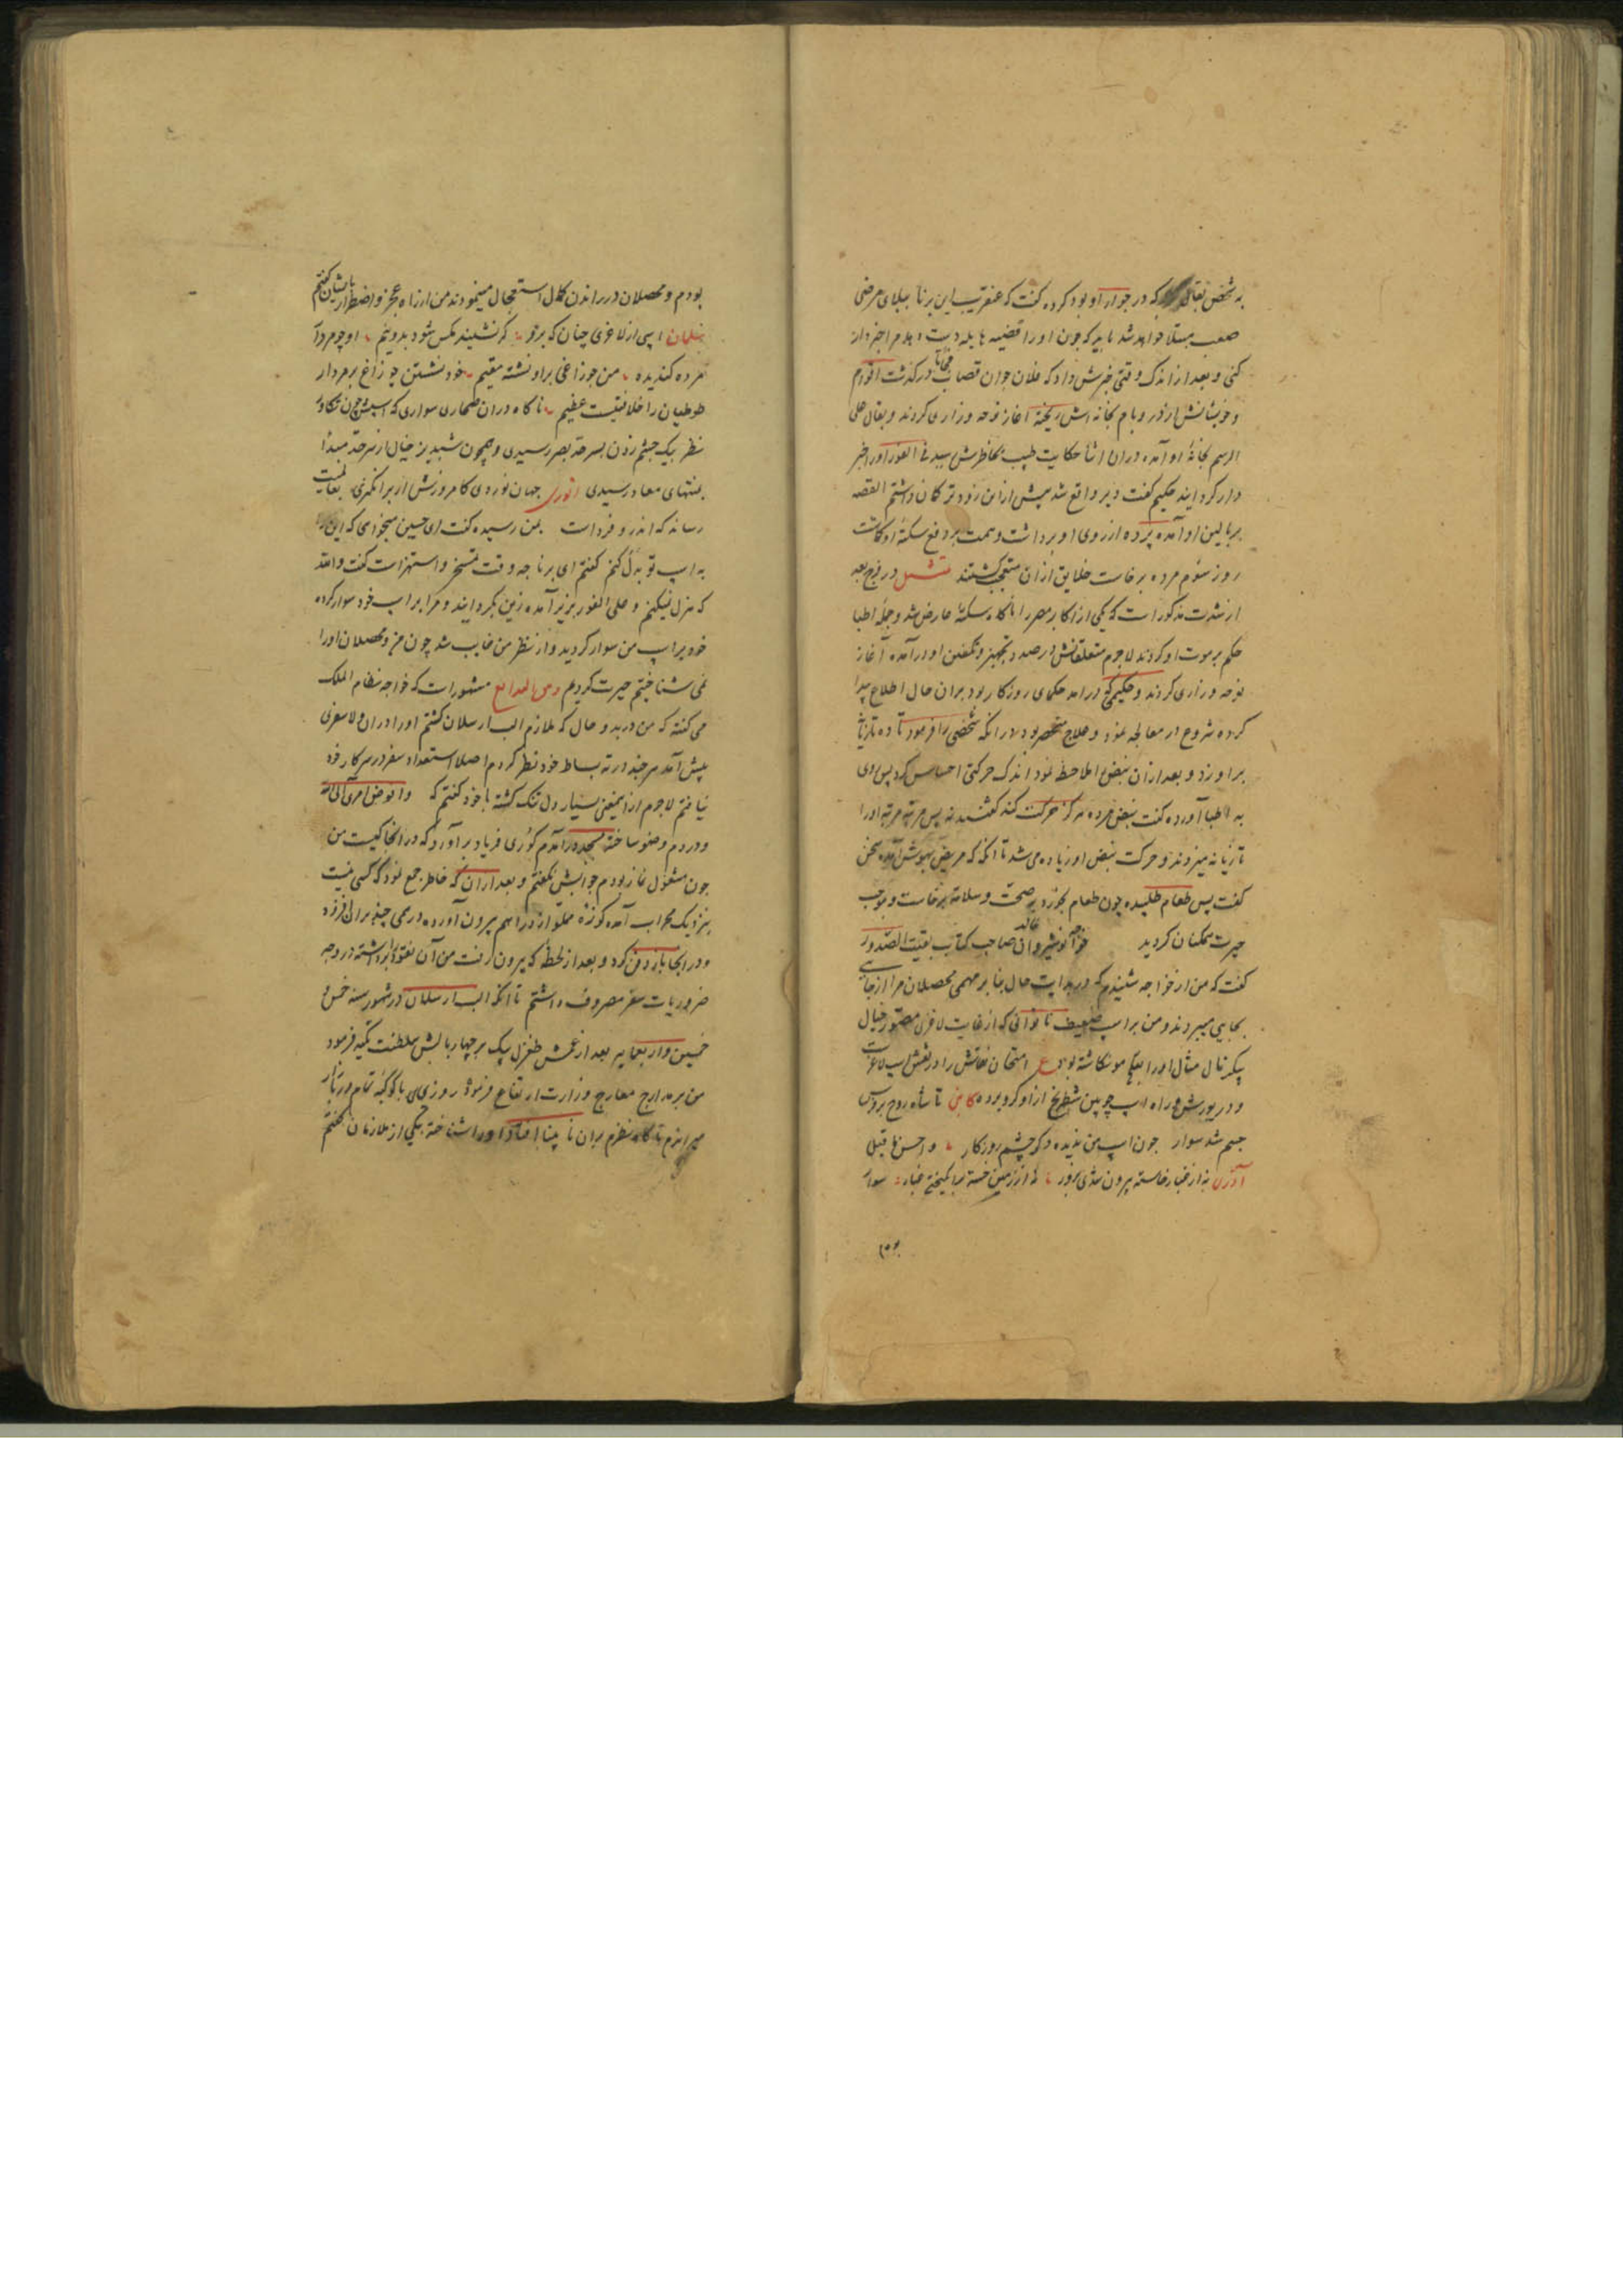 به شخص بقالی که در جوار او بود کرده گفت که عنقریب این برنا ببلای مرضی
صعب مبتلا خواهد شد باید که چون او را قضیه هایله دست دهد مرا خبردار
کنی و بعد از اندک وقتی خبرش داد که فلان جوان قصاب فجأة درگذشت اقوام
و خویشانش از در و بام بخانه اش ریخته آغاز نوحه و زاری کردند و بقال علی
الرسم بخانهٔ او آمده در آن اثنا حکایت طبیب بخاطرش رسید فی الفور او را خبر
دار گردانید حکیم گفت دیر واقع شد پیش ازین زودتر گمان داشتم القصه
بر بالین او آمده پرده از روی او برداشت و همت بر دفع سکتهٔ او گماشت
روز سوم مرده برخاست خلایق از آن متعجب گشتند در فرج بعد
از شدت مذکور است که یکی از اکابر مصر را ناگاه سکته عارض شد و جمله اطبا
حکم بر موت او کردند لاجرم متعلقانش در صدد تجهیز و تکفین او درآمده آغاز
نوحه و زاری کردند و حکیمی که سرآمد حکمای روزگار بود بر آن حال اطلاع پیدا
کرده شروع در معالجه نمود و علاج منحصر بود در انکه شخصی را فرمود تا ده تازیانه
بر او زد و بعد از آن نبض او ملاحظه نمود اندک حرکتی احساس کرد پس روی
به اطبا آورده گفت نبض مرده هرگز حرکت کند گفتند نه پس مرتبه مرتبه او را
تازیانه میزدند و حرکت نبض او زیاده می شد تا آنکه مریض بهوش آمده سخن
گفت پس طعام طلبیده چون طعام بخورد بصحت و سلامت برخاست و موجب
حیرت همگنان گردید خواجه انوشیروان خالد صاحب کتاب نفثة الصدور
گفت که من از خواجه شنیدم که در بدایت حال بنا بر مهمی محصلان مرا از جایی
بجایی میبردند و من بر اسپ ضعیف ناتوانی که از غایت لاغری مصور خیال
پیکر تال مثال او را بقلم مو نگاشته بود ع امتحان نقاش را در نقش اسپ لاغرست
و در یورش و راه اسپ چوبین شطرنج از او گرو برده کاتبی تا شاه روح بر فرس
جسم شد سوار چون اسپ من ندیده دگر چشم روزگار و احسن ما قیل
آذری نه از غبار خاسته بیرون شدی بزور نه از زمین خسته برانگیختی غبار سوار
بودم و محصلان در راندن کمال استعجال مینمودند من از راه عجز و اضطرار بایشان گفتم
سلمان اسپی از لاغری چنان که برو گر نشیند مگس شود بدو نیم او چو مردار
مرده گندیده من چو زاغی بر او نشسته مقیم خود نشستن چو زاغ بر مردار
طوطیان را خلافتیست عظیم ناگاه در آن صحاری سواری که اسپش چون تگاور
نظر بیک چشم زدن بسرحد بصر رسیدی و همچون شبدیز خیال از سرحد مبدأ
بمنتهای معاد رسیدی انوری جهان نوردی که امروزش ار برانگیزی بعالمیت
رساند که اندرو فرداست بمن رسیده گفت ای حسین میخواهی که این را
به اسپ تو بدل کنم گفتم ای برنا چه وقت تمسخر و استهزاست گفت والله
که هزل نمیکنم و علی الفور بزیر آمده زین بگردانید و مرا بر اسپ خود سوار کرده
خود بر اسپ من سوار گردید و از نظر من غایب شد چون من و محصلان او را
نمی شناختیم حیرت کردیم و من البدایع مشهور است که خواجه نظام الملک
می گفته که من در بدو حال که ملازم الب ارسلان گشتم او را در آن ولا سفری
پیش آمد هر چند در ته بساط خود نظر کردم اصلا استعداد سفر در سرکار خود
نیافتم لاجرم از این معنی بسیار دل تنگ گشته با خود گفتم که وافوض امری الی الله
و در دم وضو ساخته بمسجد درآمدم کوری فریاد برآورد که در اینجا کیست من
چون مشغول نماز بودم جوابش نگفتم و بعد از آن که خاطر جمع نمود که کسی نیست
نزدیک محراب آمده کوزه مملو از دراهم بیرون آورده درهمی چند بر آن افزوده
و در آنجا باز دفن کرد و بعد از لحظه که بیرون رفت من آن نقود را برداشته در وجه
ضروریات سفر مصروف داشتم تا آنکه الب ارسلان در شهور سنه خمس و
خمسین و اربعمایه بعد از عمش طغرل بیک بر چهار بالش سلطنت تکیه فرمود
من بر مدارج معارج وزارت ارتفاع فرمود روزی با کوکبهٔ تمام در بازار
میراندم ناگاه نظرم بر آن نابینا افتاد او را شناخته بیکی از ملازمان گفتم